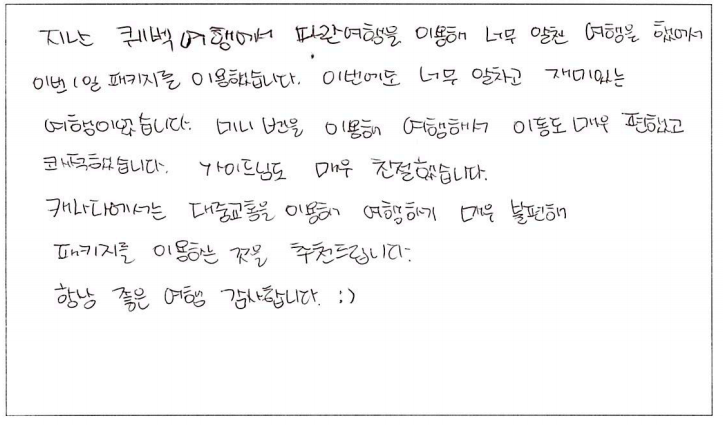 지난 퀘벡 여행에서 파란여행을 이용해 너무 알찬 여행을 했어서
이번 1일 패키지를 이용했습니다. 이번에도 너무 알차고 재미있는
여행이었습니다. 미니 밴을 이용해 여행해서 이동도 매우 편했고
쾌적했습니다. 가이드님도 매우 친절했습니다.
캐나다에서는 대중교통을 이용해 여행하기 매우 불편해
패키지를 이용하는 것을 추천드립니다.
항상 좋은 여행 감사합니다. :)